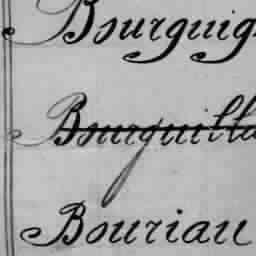 Bourguig
Bourguilla
Bouriau